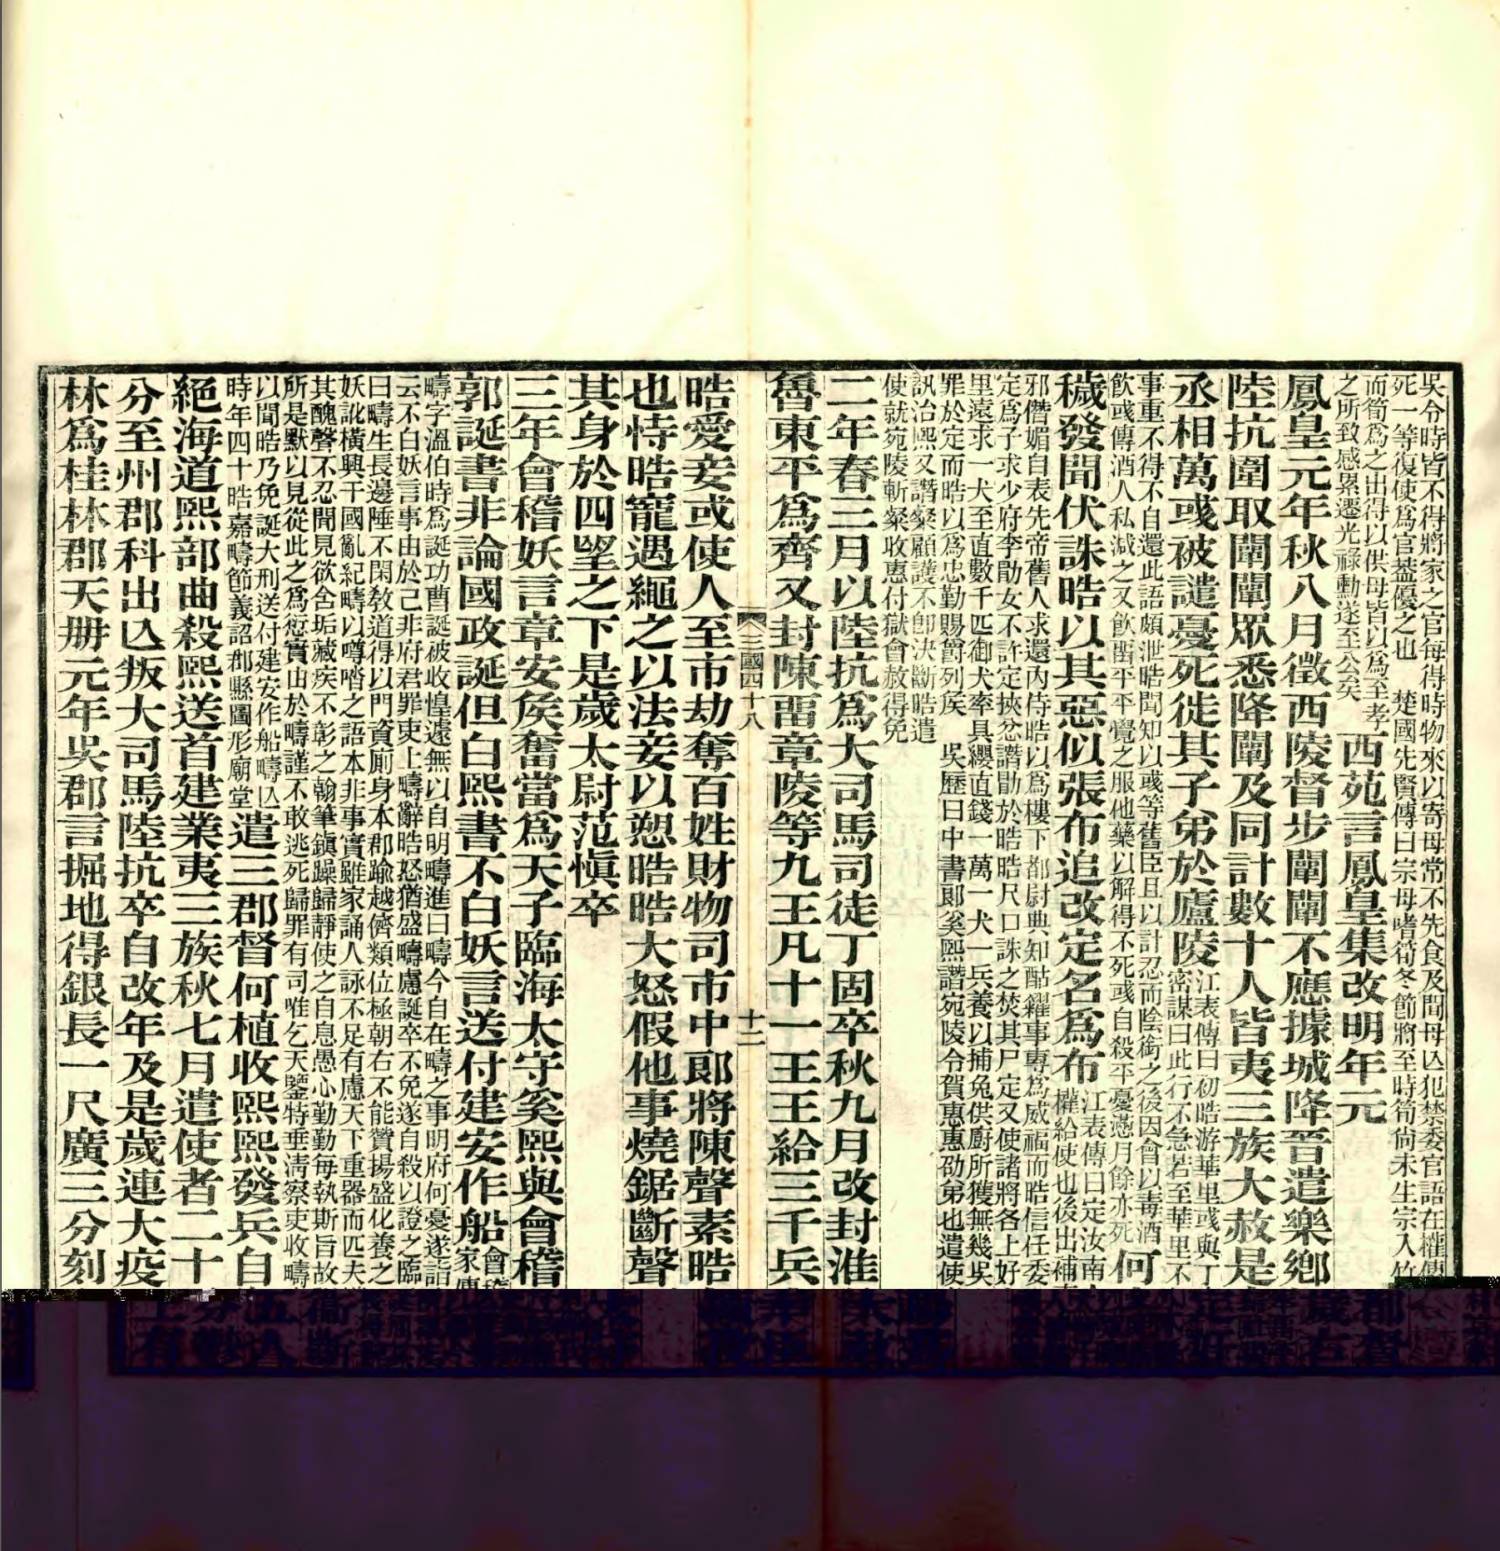 吳令時皆不得將家之官每得時物來以寄母常不先食及聞母亡犯禁委官語在權傳
死一等復使爲官葢優之也　楚國先賢傳曰宗母嗜筍冬節將至時筍尙未生宗入竹
而筍爲之出得以供母皆以爲至孝
之所致感累遷光祿勳遂至公矣
西苑言鳳皇集改明年元
鳳皇元年秋八月徵西陵督步闡闡不應據城降晉遣樂鄉
陸抗圍取闡闡眾悉降闡及同計數十人皆夷三族大赦是
丞相萬彧被譴憂死徙其子弟於廬陵
江表傳曰初皓游華里彧與丁
密謀曰此行不急若至華里不
事重不得不自還此語頗泄皓聞知以彧等舊臣且以計忍而陰銜之後因會以毒酒
飲彧傳酒人私減之又飮畱平平覺之服他藥以解得不死彧自殺平憂懣月餘亦死
何
穢發聞伏誅皓以其惡似張布追改定名爲布
江表傳曰定汝南
權給使也後出補
邪僭媚自表先帝舊人求還內侍皓以爲樓下都尉典知酤糴事專爲威福而皓信任委
定爲子求少府李勖女不許定挾忿譖勖於皓皓尺口誅之焚其尸定又使諸將各上好
里遠求一犬至直數千匹御犬率具纓直錢一萬一犬一兵養以捕兔供廚所獲無幾吳
罪於定而皓以爲忠勤賜爵列侯　吳歷曰中書郞奚熙譖宛陵令賀惠惠劭弟也遣使
訊治熙又譖粲顧護不卽決斷皓遣
使就宛陵斬粲收惠付獄會赦得免
二年春三月以陸抗爲大司馬司徒丁固卒秋九月改封淮
魯東平爲齊又封陳畱章陵等九王凡十一王王給三千兵
三國四十八
十二
皓愛妾或使人至市劫奪百姓財物司市中郞將陳聲素皓
也恃皓寵遇繩之以法妾以愬皓皓大怒假他事燒鋸斷聲
其身於四望之下是歲太尉范愼卒
三年會稽妖言章安矦奮當爲天子臨海太守奚熙與會稽
郭誕書非論國政誕但白熙書不白妖言送付建安作船
會稽
家傳
疇字溫伯時爲誕功曹誕被收惶遽無以自明疇進曰疇今自在疇之事明府何憂遂詣
云不白妖言事由於己非府君罪吏上疇辭皓怒猶盛疇慮誕卒不免遂自殺以證之臨
曰疇生長邊陲不閑敎道得以門資廁身本郡踰越儕類位極朝右不能贊揚盛化養之
妖訛橫興干國亂紀疇以噂𠴲之語本非事實雖家誦人詠不足有慮天下重器而匹夫
其醜聲不忍聞見欲含垢藏疾不彰之翰筆鎭躁歸靜使之自息愚心勤勤每執斯旨故
所是默以見從此之爲愆實由於疇謹不敢逃死歸罪有司唯乞天鑒特垂淸察吏收疇
以聞皓乃免誕大刑送付建安作船疇亡
時年四十皓嘉疇節義詔郡縣圖形廟堂
遣三郡督何植收熙熙發兵自
絕海道熙部曲殺熙送首建業夷三族秋七月遣使者二十
分至州郡科出亡叛大司馬陸抗卒自改年及是歲連大疫
林爲桂林郡天冊元年吳郡言掘地得銀長一尺廣三分刻